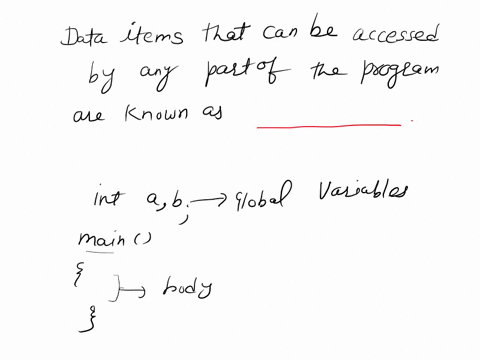 Data items that can be accessed
by any part of the program
are known as ________.
int a, b; → Global Variables
main()
{
} → body
}